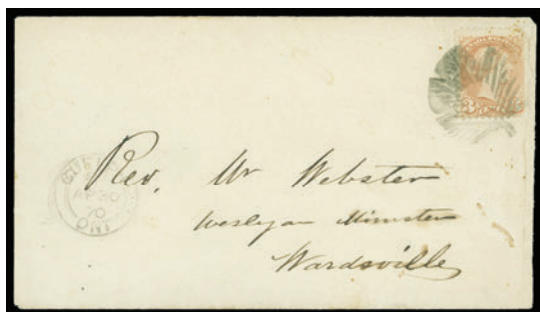 3
AP 30
70
ONT
Rev. Mr Webster
Wesleyan Minister
Wardsville